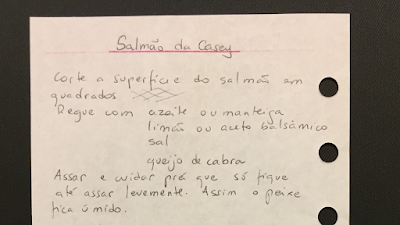 Salmão da Casey
Corte a superfície do salmão em
quadrados
Regue com azeite ou manteiga
limão ou aceto balsâmico
sal
queijo de cabra
Assar e cuidar prá que só fique
até assar levemente. Assim o peixe
fica úmido.